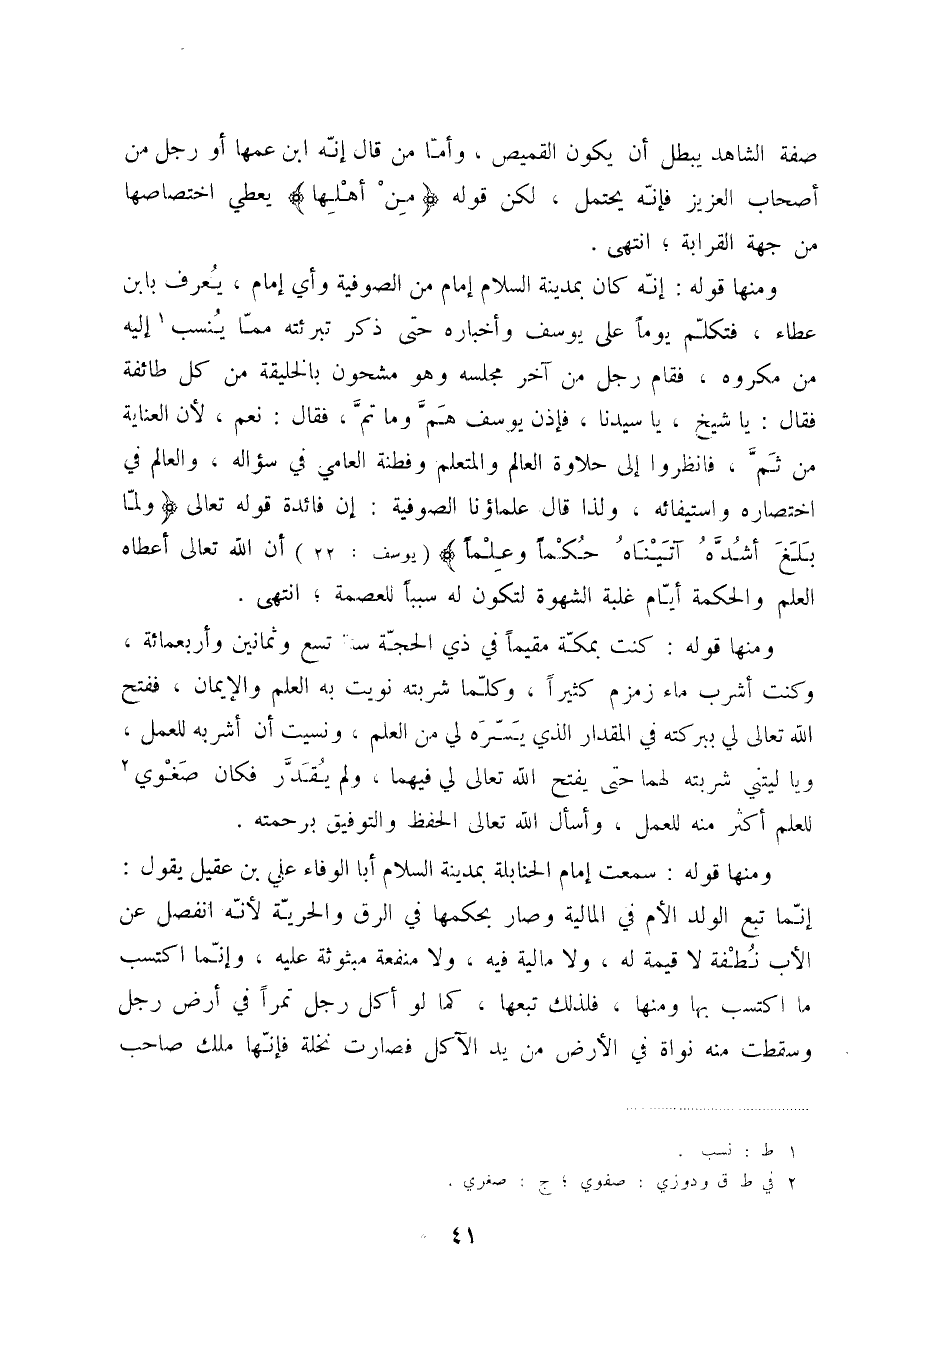 صفة الشاهد يبطل أن يكون القميص ، وأمّا من قال إنّه ابن عمها أو رجل من
أصحاب العزيز فإنّه يحتمل ، لكن قوله ﴿ مِنْ أهْلِها ﴾ يعطي اختصاصها
من جهة القرابة ؛ انتهى .
ومنها قوله : إنّه كان بمدينة السلام إمام من الصوفية وأي إمام ، يُعرف بابن
عطاء ، فتكلّم يوماً على يوسف وأخباره حتّى ذكر تبرئته ممّا يُنسب ١ إليه
من مكروه ، فقام رجل من آخر مجلسه وهو مشحون بالخليقة من كل طائفة
فقال : يا شيخ ، يا سيدنا ، فإذن يوسف هَمَّ وما تمَّ ، فقال : نعم ، لأن العناية
من ثَمَّ ، فانظروا إلى حلاوة العالم والمتعلم وفطنة العامي في سؤاله ، والعالم في
اختصاره واستيفائه ، ولذا قال علماؤنا الصوفية : إن فائدة قوله تعالى ﴿ ولمّا
بَلَغَ أشُدَّهُ آتَيْنَاهُ حُكْماً وعِلْماً ﴾ ( يوسف : ٢٢ ) أن الله تعالى أعطاه
العلم والحكمة أيّام غلبة الشهوة لتكون له سبباً للعصمة ؛ انتهى .
ومنها قوله : كنت بمكّة مقيماً في ذي الحجّة سنة تسع وثمانين وأربعمائة ،
وكنت أشرب ماء زمزم كثيراً ، وكلّما شربته نويت به العلم والإيمان ، ففتح
الله تعالى لي ببركته في المقدار الذي يَسّرَه لي من العلم ، ونسيت أن أشربه للعمل ،
ويا ليتني شربته لهما حتى يفتح الله تعالى لي فيهما ، ولم يُقَدَّر فكان صَغْوي ٢
للعلم أكثر منه للعمل ، وأسأل الله تعالى الحفظ والتوفيق برحمته .
ومنها قوله : سمعت إمام الحنابلة بمدينة السلام أبا الوفاء علي بن عقيل يقول :
إنّما تبع الولد الأم في المالية وصار بحكمها في الرق والحريّة لأنّه انفصل عن
الأب نُطْفة لا قيمة له ، ولا مالية فيه ، ولا منفعة مبثوثة عليه ، وإنّما اكتسب
ما اكتسب بها ومنها ، فلذلك تبعها ، كما لو أكل رجل تمراً في أرض رجل
وسقطت منه نواة في الأرض من يد الآكل فصارت نخلة فإنّها ملك صاحب
١ ط : نسب .
٢ في ط ق ودوزي : صفوي ؛ ج : صغري .
٤١